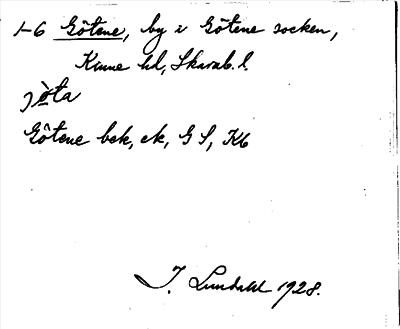 1-6 Götene, by i Götene socken,
Kinne hd, Skarab. l.
jò̱ta
Götene bck, ek, GS, K6
I. Lundahl 1928.